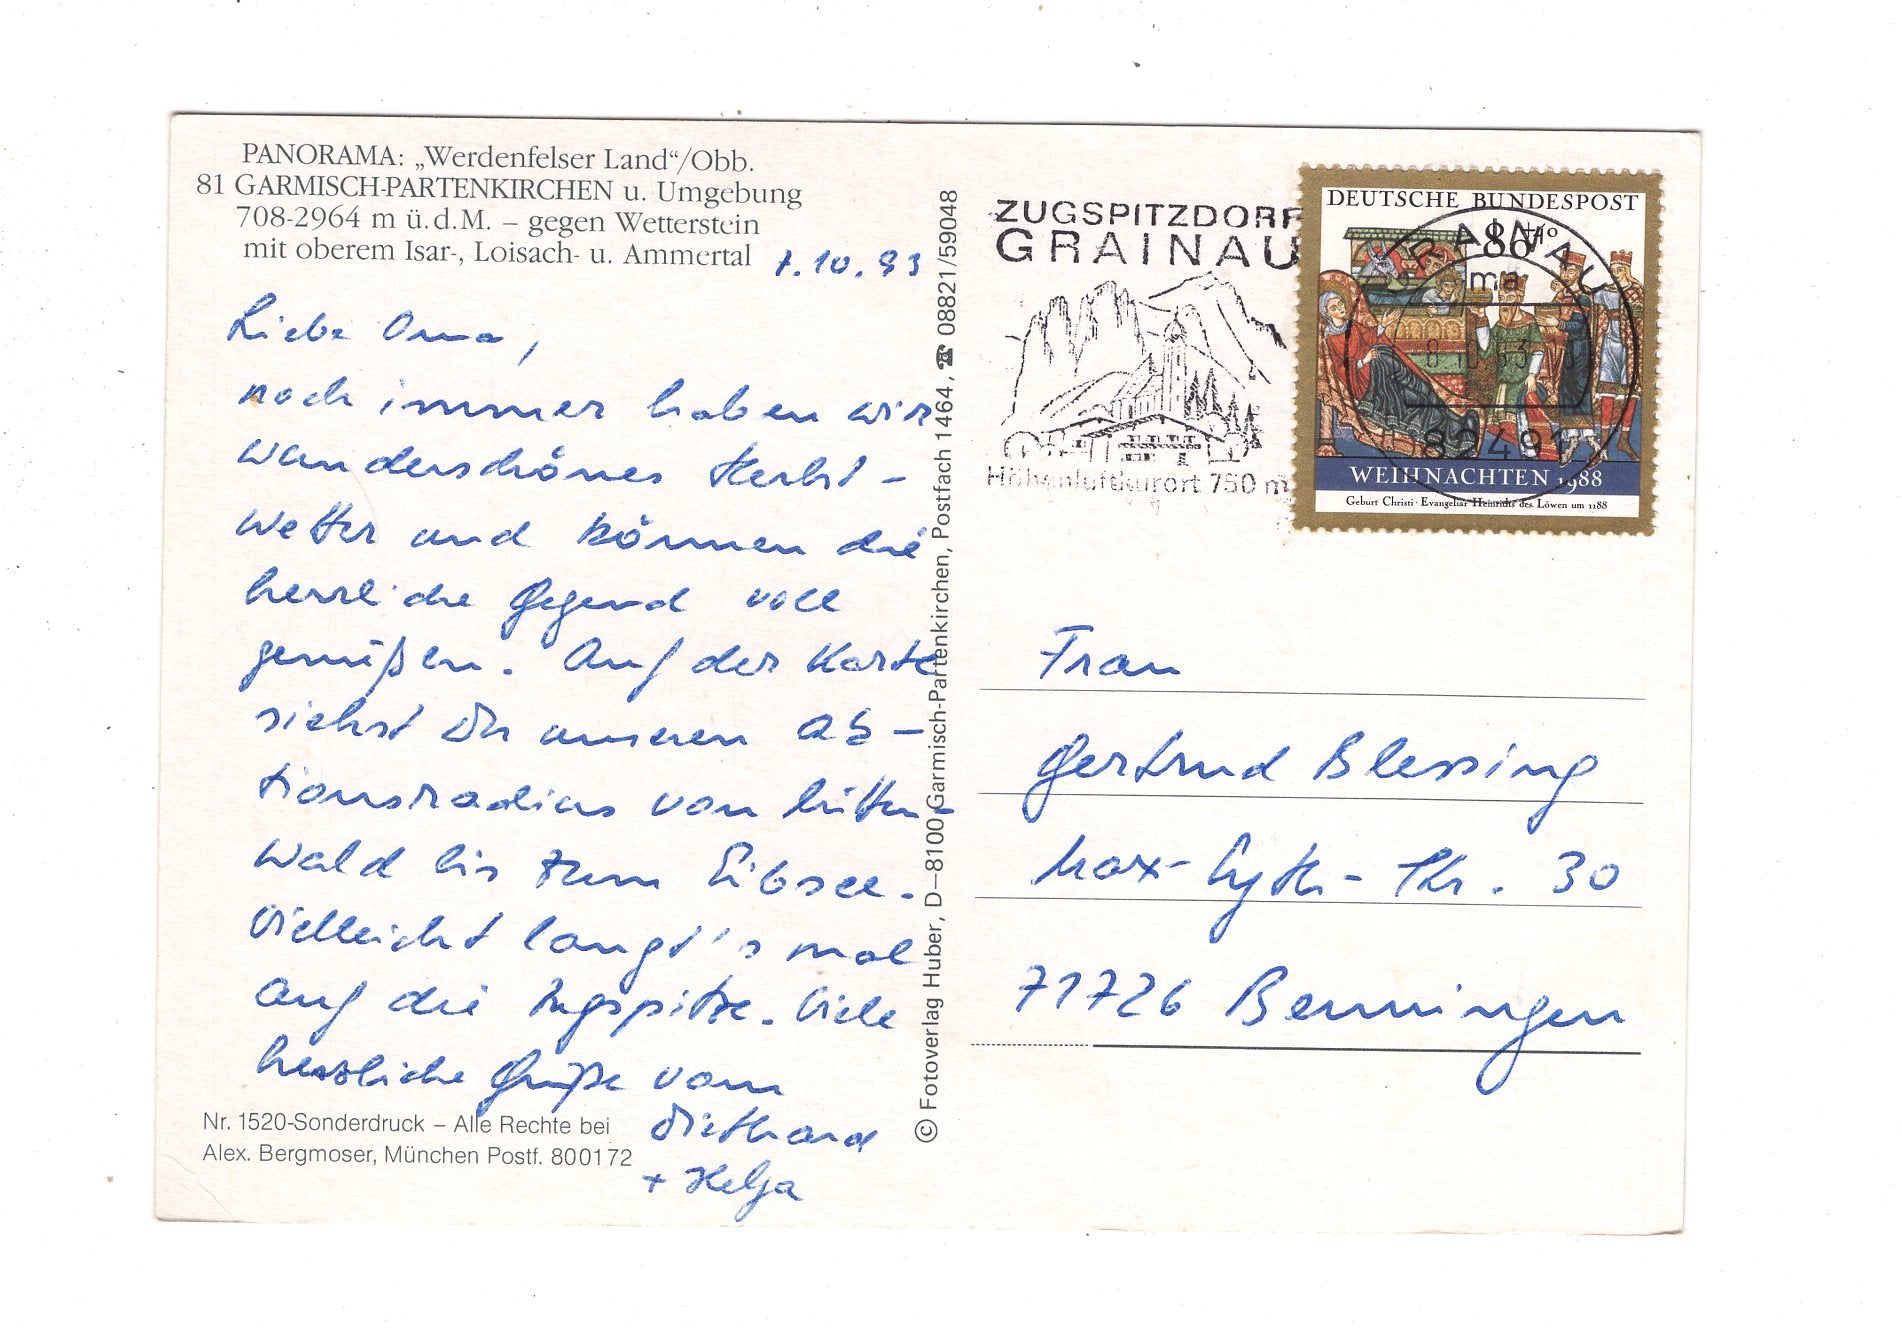 PANORAMA: „Werdenfelser Land“/Obb.
81 GARMISCH-PARTENKIRCHEN u. Umgebung
708-2964 m ü.d.M. – gegen Wetterstein
mit oberem Isar-, Loisach- u. Ammertal
7.10.93
Liebe Oma,
noch immer haben wir
wunderschönes Herbst-
wetter und können die
herrliche Gegend voll
genießen. Auf der Karte
siehst Du unseren Ak-
tionsradius von Mitten-
wald bis zum Eibsee.
Vielleicht langt's mal
auf die Zugspitze. Viele
herzliche Grüße vom
Diethard
+ Helga
Nr. 1520-Sonderdruck – Alle Rechte bei
Alex. Bergmoser, München Postf. 800172
© Fotoverlag Huber, D–8100 Garmisch-Partenkirchen, Postfach 1464, ☎ 08821/59048
ZUGSPITZDORF
GRAINAU
Höhenluftkurort 750 m
DEUTSCHE BUNDESPOST
80+40
GRAINAU
ma
82491
WEIHNACHTEN 1988
Geburt Christi · Evangeliar Heinrichs des Löwen um 1188
Frau
Gertrud Blessing
Max-Eyth-Str. 30
71726 Benningen